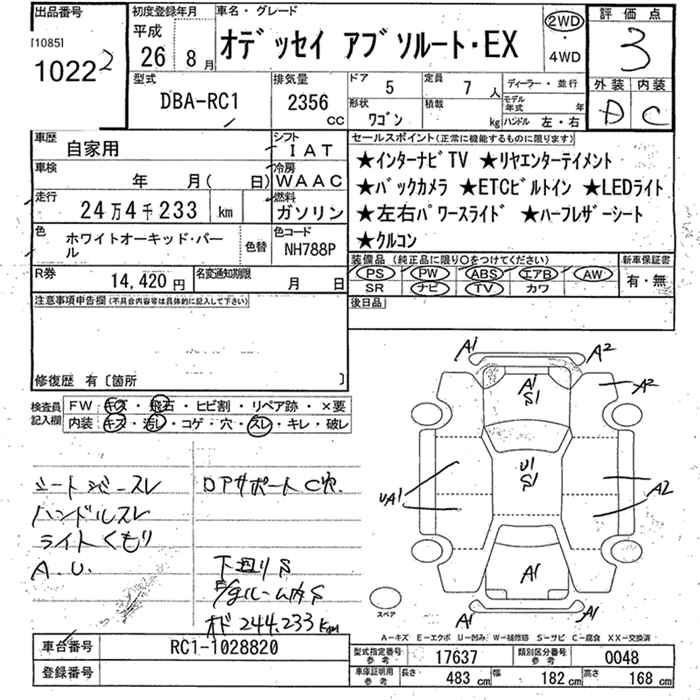 出品番号
[1085]
1022 2
初度登録年月
平成
26年 8月
車名・グレード
オデッセイ アブソルート・EX
2WD
・
4WD
評価点
3
外装 内装
D C
型式
DBA-RC1
排気量
2356
CC
ドア
5
定員
7 人
形状
ワゴン
積載
kg
ディーラー・並行
モデル年式 年
ハンドル 左・右
車歴
自家用
シフト
IAT
車検
年 月( 日)
冷房
WAAC
走行
24万4千233 km
燃料
ガソリン
色
ホワイトオーキッド・パール
色替
色コード
NH788P
R券
14,420円
名変通知期限
月 日
セールスポイント(正常に機能するものに限ります)
★インターナビTV ★リヤエンターテイメント
★バックカメラ ★ETCビルトイン ★LEDライト
★左右パワースライド ★ハーフレザーシート
★クルコン
装備品(純正品に限り○をつけてください)
PS PW ABS エアB AW
SR ナビ TV カワ
新車保証書
有・無
後日品
注意事項申告欄(不具合内容等は具体的に記入して下さい)
修復歴 有〔箇所 〕
検査員
記入欄
FW キズ・飛石・ヒビ割・リペア跡・×要
内装 キズ・汚レ・コゲ・穴・スレ・キレ・破レ
シートカバースレ
ハンドルスレ
ライトくもり
A.U.
Dアサポート C穴.
下回りS
E/gルーム内S
オド 244,233km
A1 A2
A1
S1
A2
U1
S1
UA1
A2
A1
A1 A1
スペア
A-キズ E-エクボ U-凹み W-補修跡 S-サビ C-腐食 XX-交換済
車台番号
RC1-1028820
登録番号
型式指定番号
参考
17637
類別区分番号
参考
0048
車庫証明用
参考
長さ 483 cm 幅 182 cm 高さ 168 cm